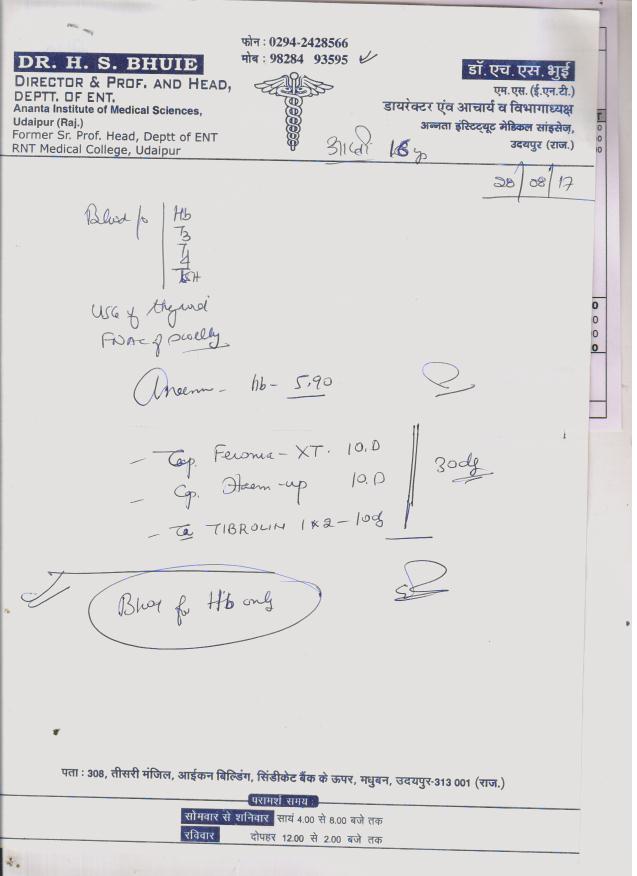 फोन : 0294-2428566
मोब : 98284 93595
DR. H. S. BHUIE
DIRECTOR & PROF. AND HEAD,
DEPTT. OF ENT.
Ananta Institute of Medical Sciences,
Udaipur (Raj.)
Former Sr. Prof. Head, Deptt of ENT
RNT Medical College, Udaipur
डॉ. एच. एस. भुई
एम.एस. (ई.एन.टी.)
डायरेक्टर एंव आचार्य व विभागाध्यक्ष
अनन्ता इंस्टिट्यूट मेडिकल सांइसेज,
उदयपुर (राज.)
28/08/17
Blood
Hb
T3
T4
TSH
USG of thyroid
FNAC of
Hb - 5.90
XT. 10.D
Cap. Haem-up 10.D
TIBROLIN 1x2-10d
30dy
for Hb only
पता : 308, तीसरी मंजिल, आईकन बिल्डिंग, सिंडीकेट बैंक के ऊपर, मधुबन, उदयपुर-313 001 (राज.)
परामर्श समय :
सोमवार से शनिवार सायं 4.00 से 8.00 बजे तक
रविवार दोपहर 12.00 से 2.00 बजे तक